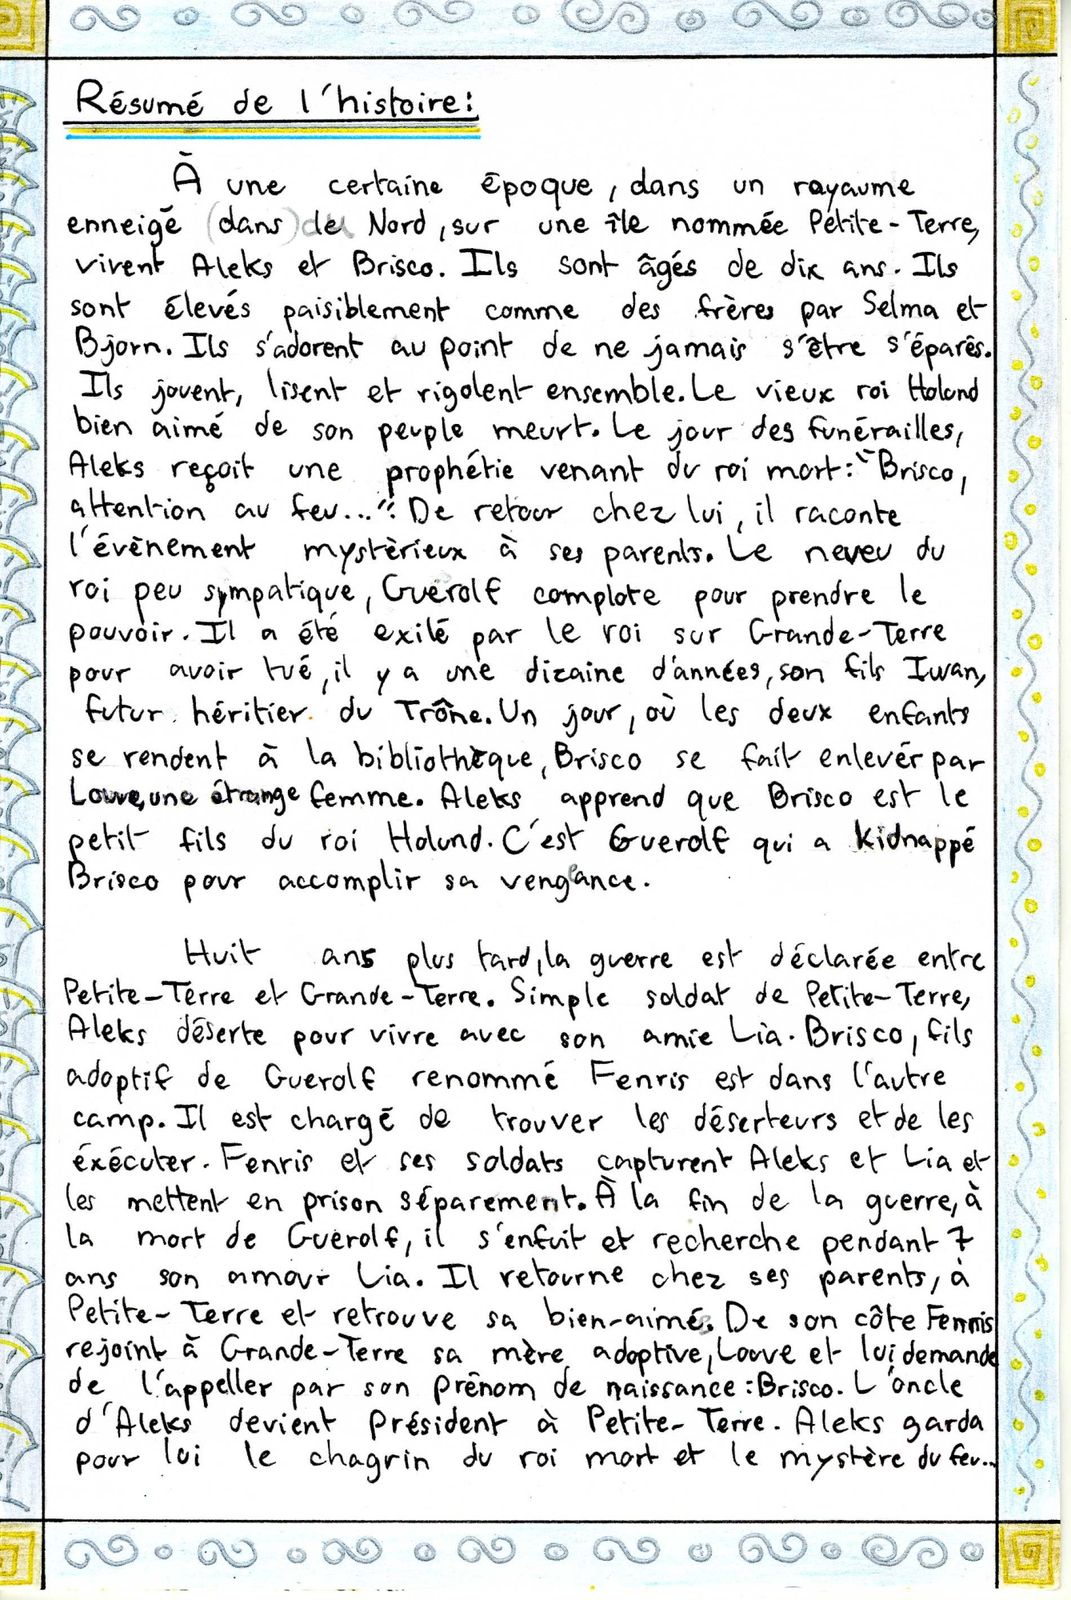 Résumé de l'histoire:
À une certaine époque, dans un royaume
enneigé (dans) du Nord, sur une île nommée Petite-Terre,
vivent Aleks et Brisco. Ils sont âgés de dix ans. Ils
sont élevés paisiblement comme des frères par Selma et
Bjorn. Ils s'adorent au point de ne jamais s'être s'éparés.
Ils jouent, lisent et rigolent ensemble. Le vieux roi Holund
bien aimé de son peuple meurt. Le jour des funérailles,
Aleks reçoit une prophétie venant du roi mort: "Brisco,
attention au feu...". De retour chez lui, il raconte
l'évènement mystèrieux à ses parents. Le neveu du
roi peu sympatique, Guerolf complote pour prendre le
pouvoir. Il a été exilé par le roi sur Grande-Terre
pour avoir tué, il y a une dizaine d'années, son fils Iwan,
futur héritier du Trône. Un jour, où les deux enfants
se rendent à la bibliothèque, Brisco se fait enlevér par
Louve, une étrange femme. Aleks apprend que Brisco est le
petit fils du roi Holund. C'est Guerolf qui a kidnappé
Brisco pour accomplir sa vengeance.
Huit ans plus tard, la guerre est déclarée entre
Petite-Terre et Grande-Terre. Simple soldat de Petite-Terre,
Aleks déserte pour vivre avec son amie Lia. Brisco, fils
adoptif de Guerolf renommé Fenris est dans l'autre
camp. Il est chargé de trouver les déserteurs et de les
éxécuter. Fenris et ses soldats capturent Aleks et Lia et
les mettent en prison séparement. À la fin de la guerre, à
la mort de Guerolf, il s'enfuit et recherche pendant 7
ans son amour Lia. Il retourne chez ses parents, à
Petite-Terre et retrouve sa bien-aimé. De son côte Fenris
rejoint à Grande-Terre sa mère adoptive, Louve et lui demande
de l'appeller par son prénom de naissance: Brisco. L'oncle
d'Aleks devient président à Petite-Terre. Aleks garda
pour lui le chagrin du roi mort et le mystère du feu...